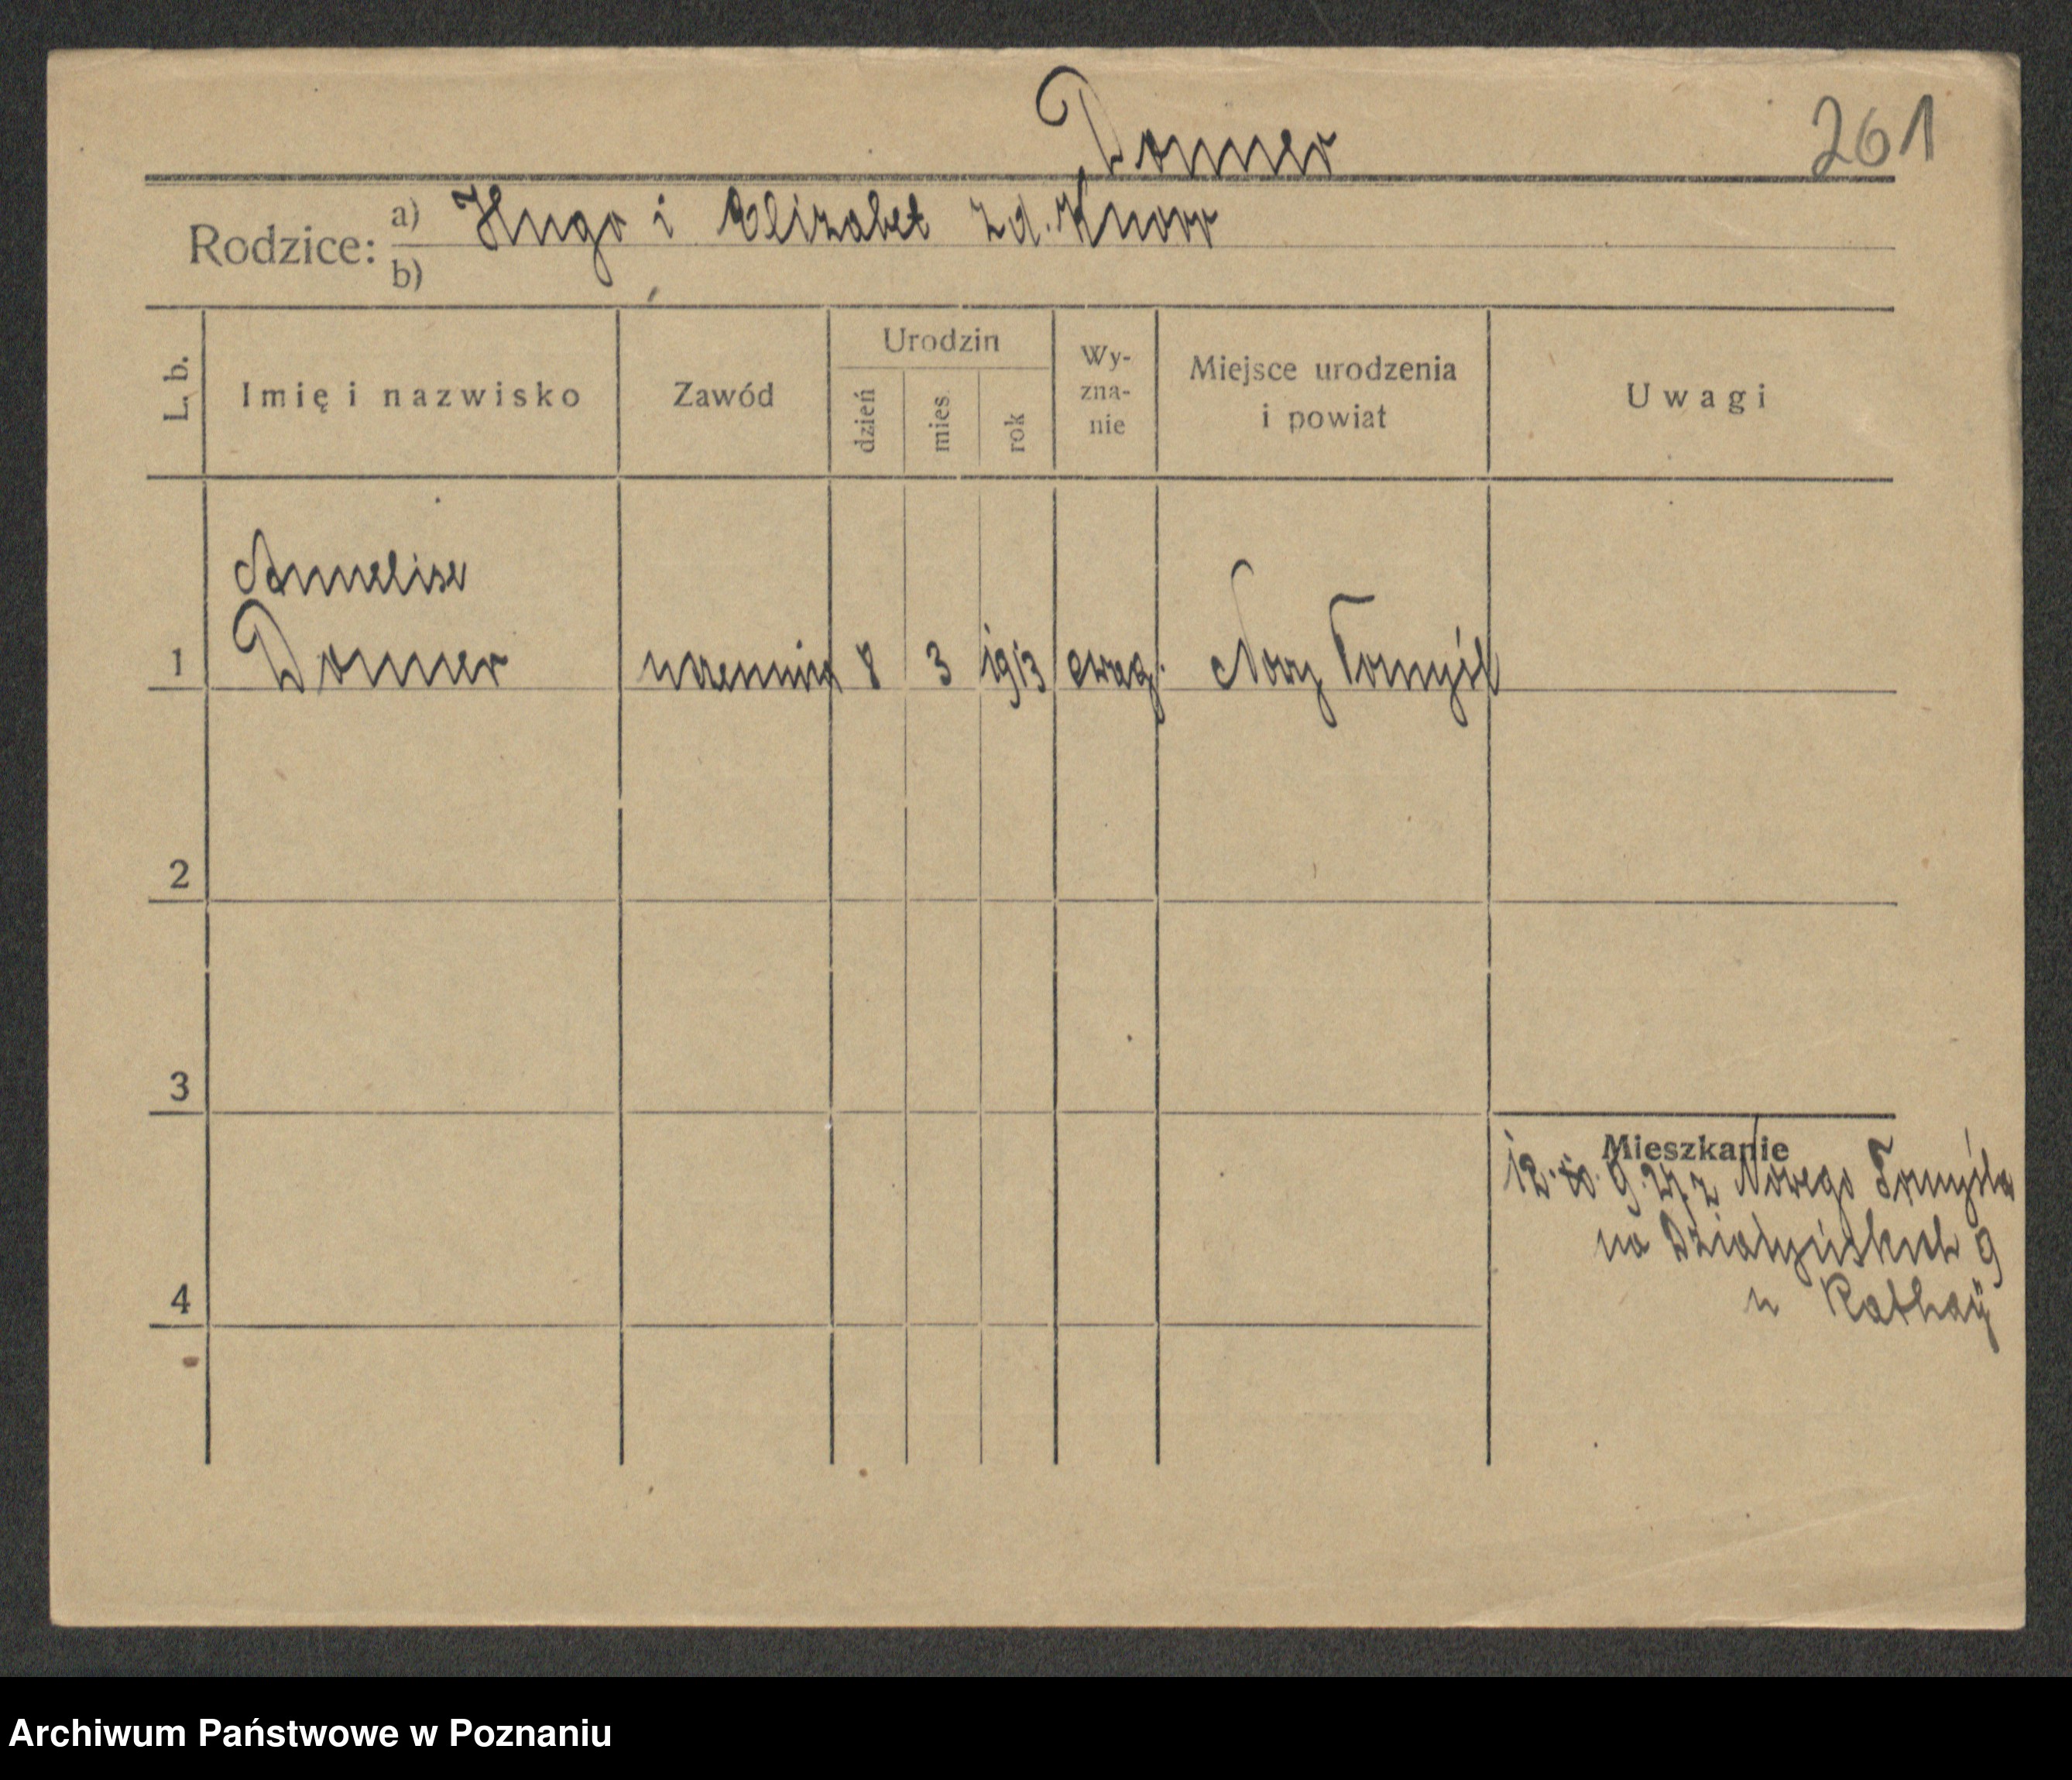 Donner
261
Rodzice: a) Hugo i Elizabet zd. Knorr
b)
L. b.
Imię i nazwisko
Zawód
Urodzin
dzień
mies.
rok
Wy-
zna-
nie
Miejsce urodzenia
i powiat
Uwagi
Annelise
1 Donner uczennica 8 3 1913 ewag. Nowy Tomyśl
2
3
Mieszkanie
12. 9. 27 z Nowego Tomyśla
na Działyńskich 9
u
4
Archiwum Państwowe w Poznaniu